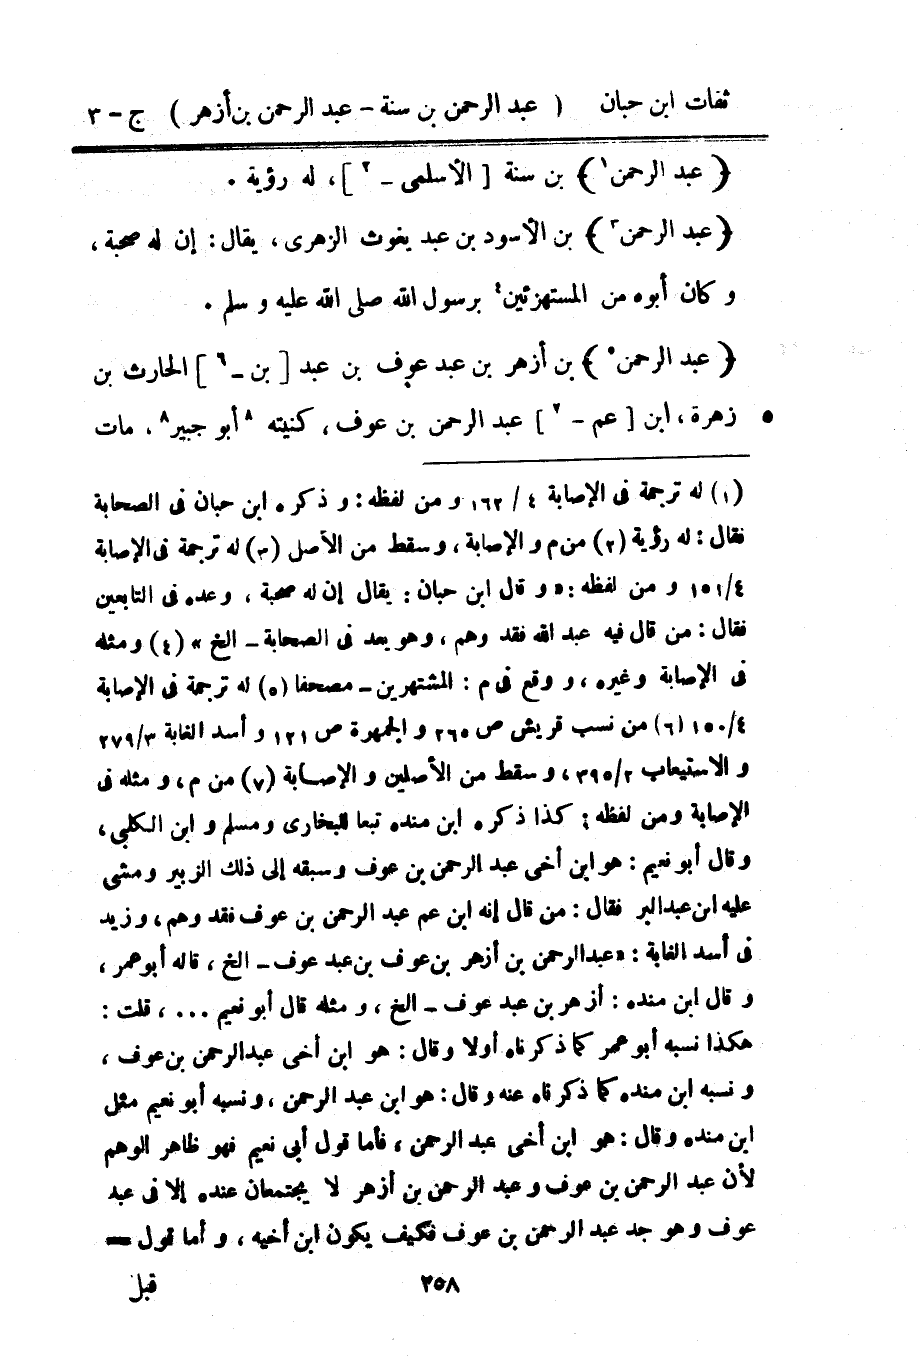 ثقات ابن حبان ( عبد الرحمن بن سنة - عبد الرحمن بن أزهر ) ج - ٣
﴿ عبد الرحمن١ ﴾ بن سنة [ الأسلمى - ٢ ]، له رؤية .
﴿ عبد الرحمن٣ ﴾ بن الأسود بن عبد يغوث الزهرى، يقال: إن له صحبة،
و كان أبوه من المستهزئين٤ برسول الله صلى الله عليه و سلم .
﴿ عبد الرحمن٥ ﴾ بن أزهر بن عبد عوف بن عبد [ بن - ٦ ] الحارث بن
٥ زهرة، ابن [ عم - ٧ ] عبد الرحمن بن عوف، كنيته ٨ أبو جبير٨، مات
(١) له ترجمة فى الإصابة ٤ / ١٦٢ و من لفظه: و ذكره ابن حبان فى الصحابة
فقال: له رؤية (٢) من م و الإصابة، و سقط من الأصل (٣) له ترجمة فى الإصابة
٤/ ١٥١ و من لفظه: « و قال ابن حبان : يقال إن له صحبة ، وعده فى التابعين
فقال: من قال فيه عبد الله فقد وهم، وهو يعد فى الصحابة - الخ » (٤) و مثله
فى الإصابة وغيره، و وقع فى م : المشتهرين - مصحفا (٥) له ترجمة فى الإصابة
٤/ ١٥٠ (٦) من نسب قريش ص ٢٦٥ و الجمهرة ص ١٢١ و أسد الغابة ٣/ ٢٧٩
و الاستيعاب ٢/ ٣٩٥، و سقط من الأصلين و الإصابة (٧) من م، و مثله فى
الإصابة ومن لفظه : كذا ذكره ابن منده تبعا للبخارى ومسلم و ابن الكلبي،
وقال أبو نعيم : هو ابن أخى عبد الرحمن بن عوف وسبقه إلى ذلك الزبير ومشى
عليه ابن عبد البر فقال : من قال إنه ابن عم عبد الرحمن بن عوف فقد وهم، و زيد
فى أسد الغابة : «عبد الرحمن بن أزهر بن عوف بن عبد عوف - الخ ، قاله أبو عمر ،
و قال ابن منده : أزهر بن عبد عوف - الخ ، و مثله قال أبو نعيم ... ، قلت :
هكذا نسبه أبو عمر كما ذكرناه أولا وقال : هو ابن أخى عبد الرحمن بن عوف ،
و نسبه ابن منده كما ذكرناه عنه وقال : هو ابن عبد الرحمن ، ونسبه أبو نعيم مثل
ابن منده وقال : هو ابن أخى عبد الرحمن ، فأما قول أبى نعيم فهو ظاهر الوهم
لأن عبد الرحمن بن عوف و عبد الرحمن بن أزهر لا يجتمعان عنده إلا فى عبد
عوف و هو جد عبد الرحمن بن عوف فكيف يكون ابن أخيه ، و أما قول =
٢٥٨ قبل